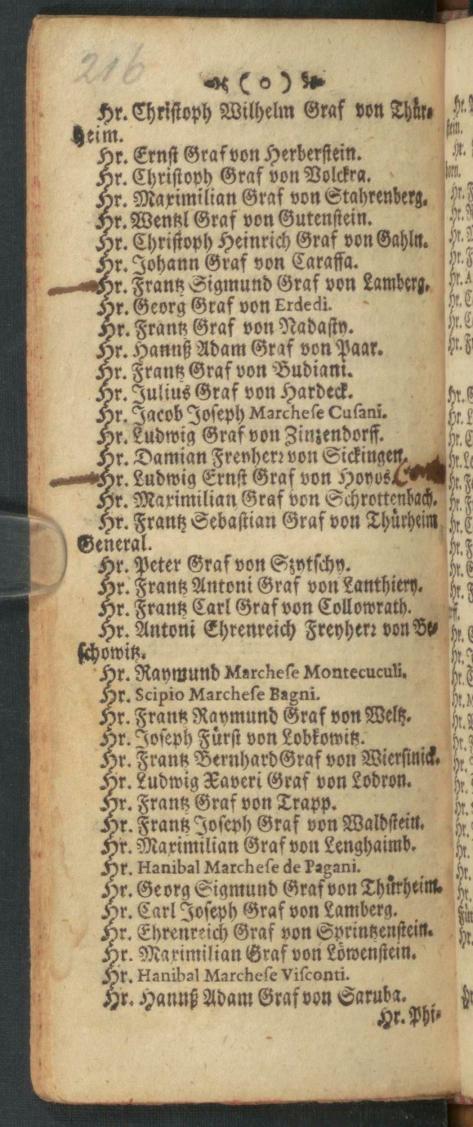 216
( o )
Hr. Christoph Wilhelm Graf von Thür-
heim.
Hr. Ernst Graf von Herberstein.
Hr. Christoph Graf von Volckra.
Hr. Maximilian Graf von Stahrenberg.
Hr. Wentzl Graf von Gutenstein.
Hr. Christoph Heinrich Graf von Gahln.
Hr. Johann Graf von Caraffa.
Hr. Frantz Sigmund Graf von Lamberg.
Hr. Georg Graf von Erdedi.
Hr. Frantz Graf von Nadasty.
Hr. Hannß Adam Graf von Paar.
Hr. Frantz Graf von Budiani.
Hr. Julius Graf von Hardeck.
Hr. Jacob Joseph Marcheſe Cuſani.
Hr. Ludwig Graf von Zinzendorff.
Hr. Damian Freyherr von Sickingen.
Hr. Ludwig Ernst Graf von Hoyos.
Hr. Maximilian Graf von Schrottenbach.
Hr. Frantz Sebastian Graf von Thürheim
General.
Hr. Peter Graf von Szytschy.
Hr. Frantz Antoni Graf von Lanthiery.
Hr. Frantz Carl Graf von Collowrath.
Hr. Antoni Ehrenreich Freyherr von Be-
schowitz.
Hr. Raymund Marcheſe Montecuculi.
Hr. Scipio Marcheſe Bagni.
Hr. Frantz Raymund Graf von Weltz.
Hr. Joseph Fürst von Lobkowitz.
Hr. Frantz Bernhard Graf von Wiersinick.
Hr. Ludwig Xaveri Graf von Lodron.
Hr. Frantz Graf von Trapp.
Hr. Frantz Joseph Graf von Waldstein.
Hr. Maximilian Graf von Lenghaimb.
Hr. Hanibal Marcheſe de Pagani.
Hr. Georg Sigmund Graf von Thürheim.
Hr. Carl Joseph Graf von Lamberg.
Hr. Ehrenreich Graf von Sprintzenstein.
Hr. Maximilian Graf von Löwenstein.
Hr. Hanibal Marcheſe Viſconti.
Hr. Hannß Adam Graf von Saruba.
Hr. Phi-